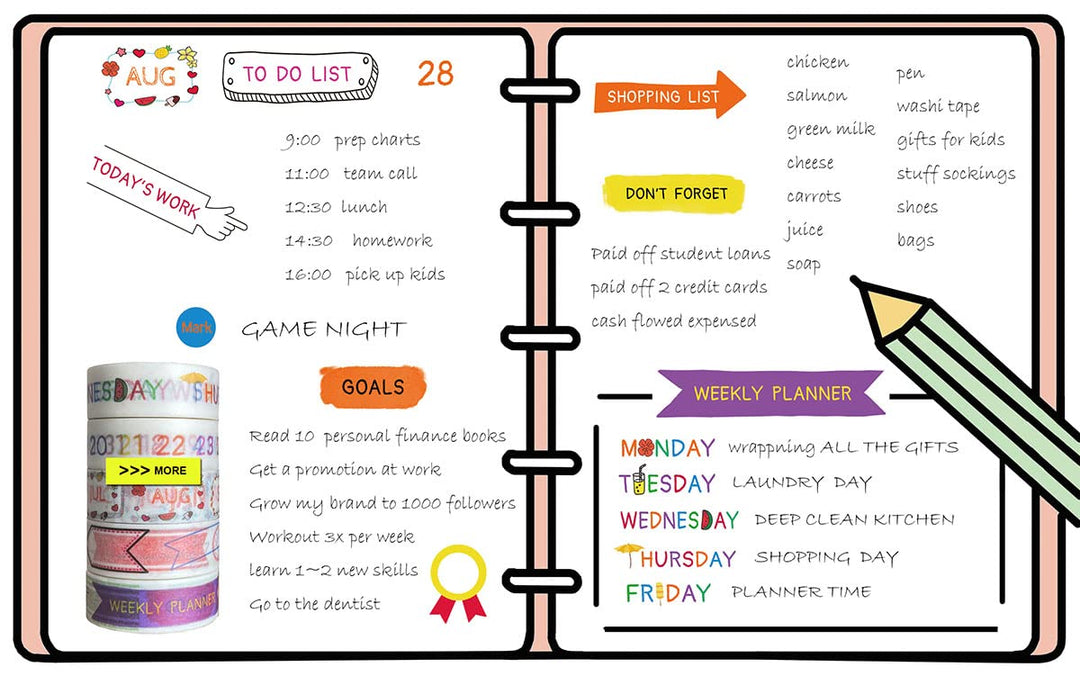 AUG
TO DO LIST
28
TODAY'S WORK
9:00 prep charts
11:00 team call
12:30 lunch
14:30 homework
16:00 pick up kids
Mark
GAME NIGHT
GOALS
Read 10 personal finance books
Get a promotion at work
Grow my brand to 1000 followers
Workout 3x per week
learn 1~2 new skills
Go to the dentist
>>> MORE
JUL AUG
WEEKLY PLANNER
SHOPPING LIST
chicken
salmon
green milk
cheese
carrots
juice
soap
pen
washi tape
gifts for kids
stuff sockings
shoes
bags
DON'T FORGET
Paid off student loans
paid off 2 credit cards
cash flowed expensed
WEEKLY PLANNER
MONDAY wrappning ALL THE GIFTS
TUESDAY LAUNDRY DAY
WEDNESDAY DEEP CLEAN KITCHEN
THURSDAY SHOPPING DAY
FRIDAY PLANNER TIME